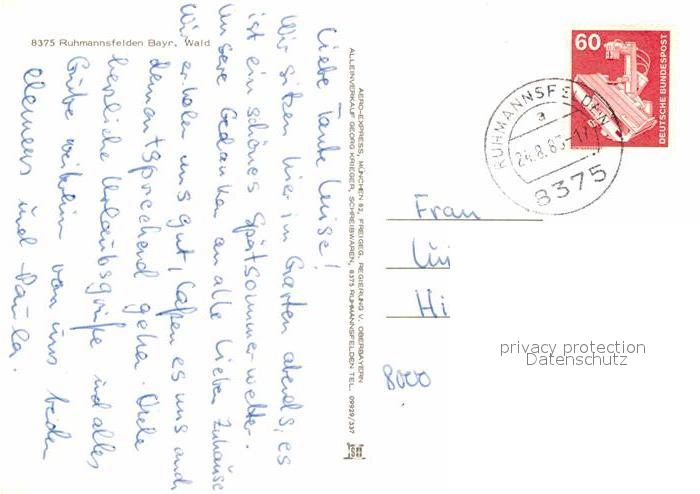 8375 Ruhmannsfelden Bayr. Wald
Liebe Tante Luise!
Wir sitzen hier im Garten abends, es
ist ein schönes Spätsommerwetter.
Unsere Gedanken an alle Lieben Zuhause
Wir erholen uns gut, laßen es uns auch
dementsprechend gehn. Viele
herzliche Urlaubsgrüße und alles
Gute weiterhin von uns beiden
Clemens und Paula.
AERO-EXPRESS, MÜNCHEN 82, FREIGEG. REGIERUNG V. OBERBAYERN
ALLEINVERKAUF GEORG KRIEGER, SCHREIBWAREN, 8375 RUHMANNSFELDEN TEL. 09929/337
60
DEUTSCHE BUNDESPOST
RUHMANNSFELDEN
a
24.8.83
8375
Frau
Lui
Hi
8000
privacy protection
Datenschutz